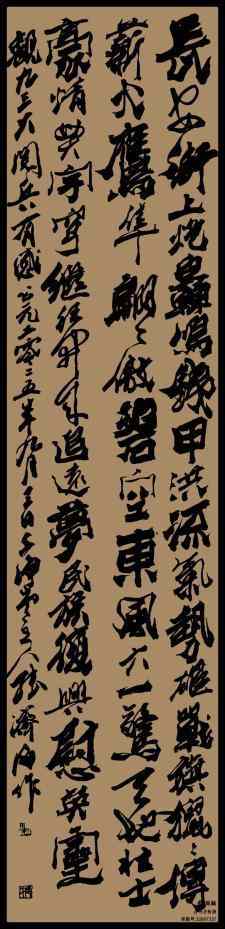 長安街上炮轟鳴鐵甲洪流氣勢雄戰旗獵〻傳
薪火鷹隼翩〻傲碧空東風六一驚天地壯士
豪情貫宇穹繼往開來追遠夢民族復興慰英靈
觀九三大閱兵有感公元二零二五年九月三日上海主人張濟海作